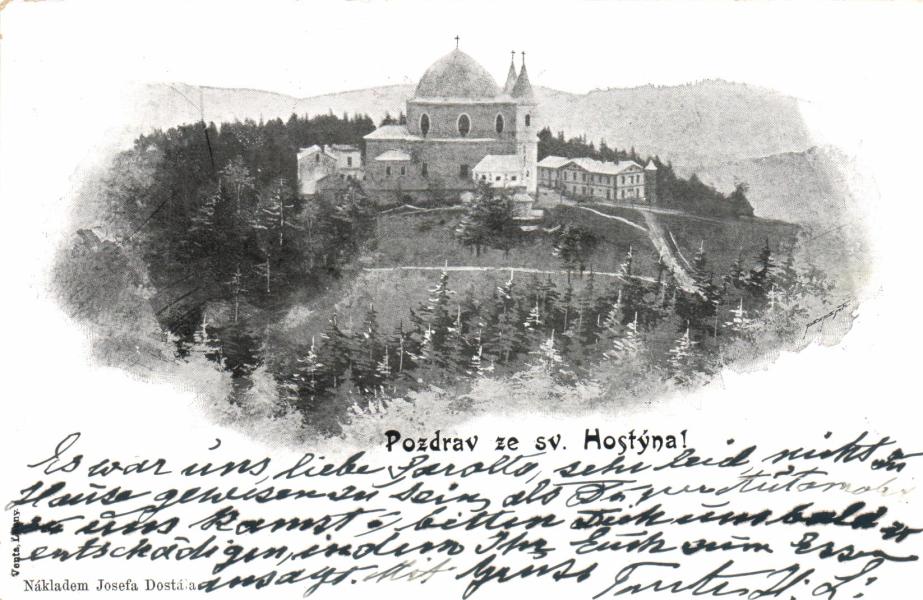 Pozdrav ze sv. Hostýna!
Es war uns, liebe sehr leid, nicht zu
Hause gewesen zu sein, als Du per Automobil
zu uns kamst, bitten Dich um bald
entschädigen, indem Ihr Euch zum
ansagt. Mit Gruss
Nákladem Josefa Dostála